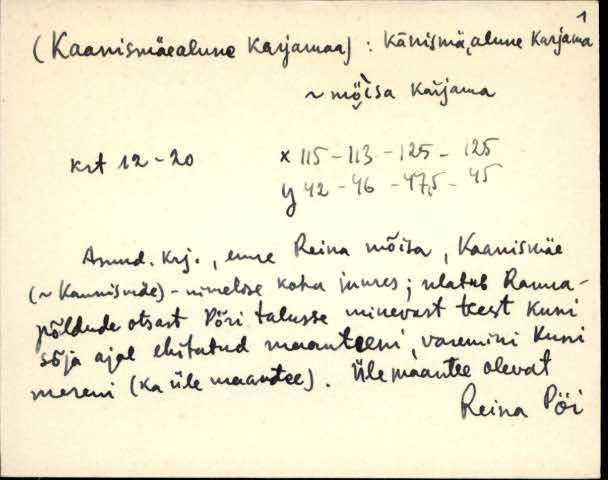 1
(Kaanismäealune Karjamaa) : Kānismä,alune Karjama
~ mõisa kařjama
krt 12-20 x 115 - 113 - 125 - 125
y 42 - 46 - 47,5 - 45
Asund. krj., enne Reina mõisa, Kaanismäe
(~ Kaunismäe) - nimelise koha juures; ulatub Ranna-
põldude otsast Põri talusse minevast teest kuni
sõja ajal ehitatud maanteeni, varemini kuni
mereni (ka üle maantee). Üle maantee olevat
Reina Pöi